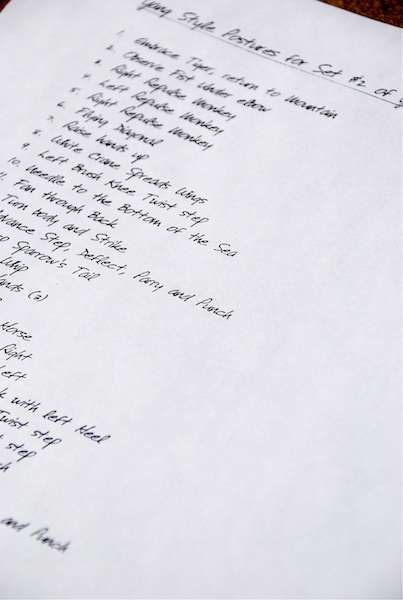 Style Postures for Set #2 of
1. Embrace Tiger, return to Mountain
2. Observe Fist Under elbow
3. Right Repulse Monkey
4. Left Repulse Monkey
5. Right Repulse Monkey
6. Flying Diagonal
7. Raise Hands up
8. White Crane Spreads Wings
9. Left Brush Knee Twist step
10. Needle to the Bottom of the Sea
Fan through Back
Turn body and Strike
Step, Deflect, Parry and Punch
Sparrow's Tail
Whip
(2)
Horse
Right
Left
with left Heel
Twist step
step
and Punch